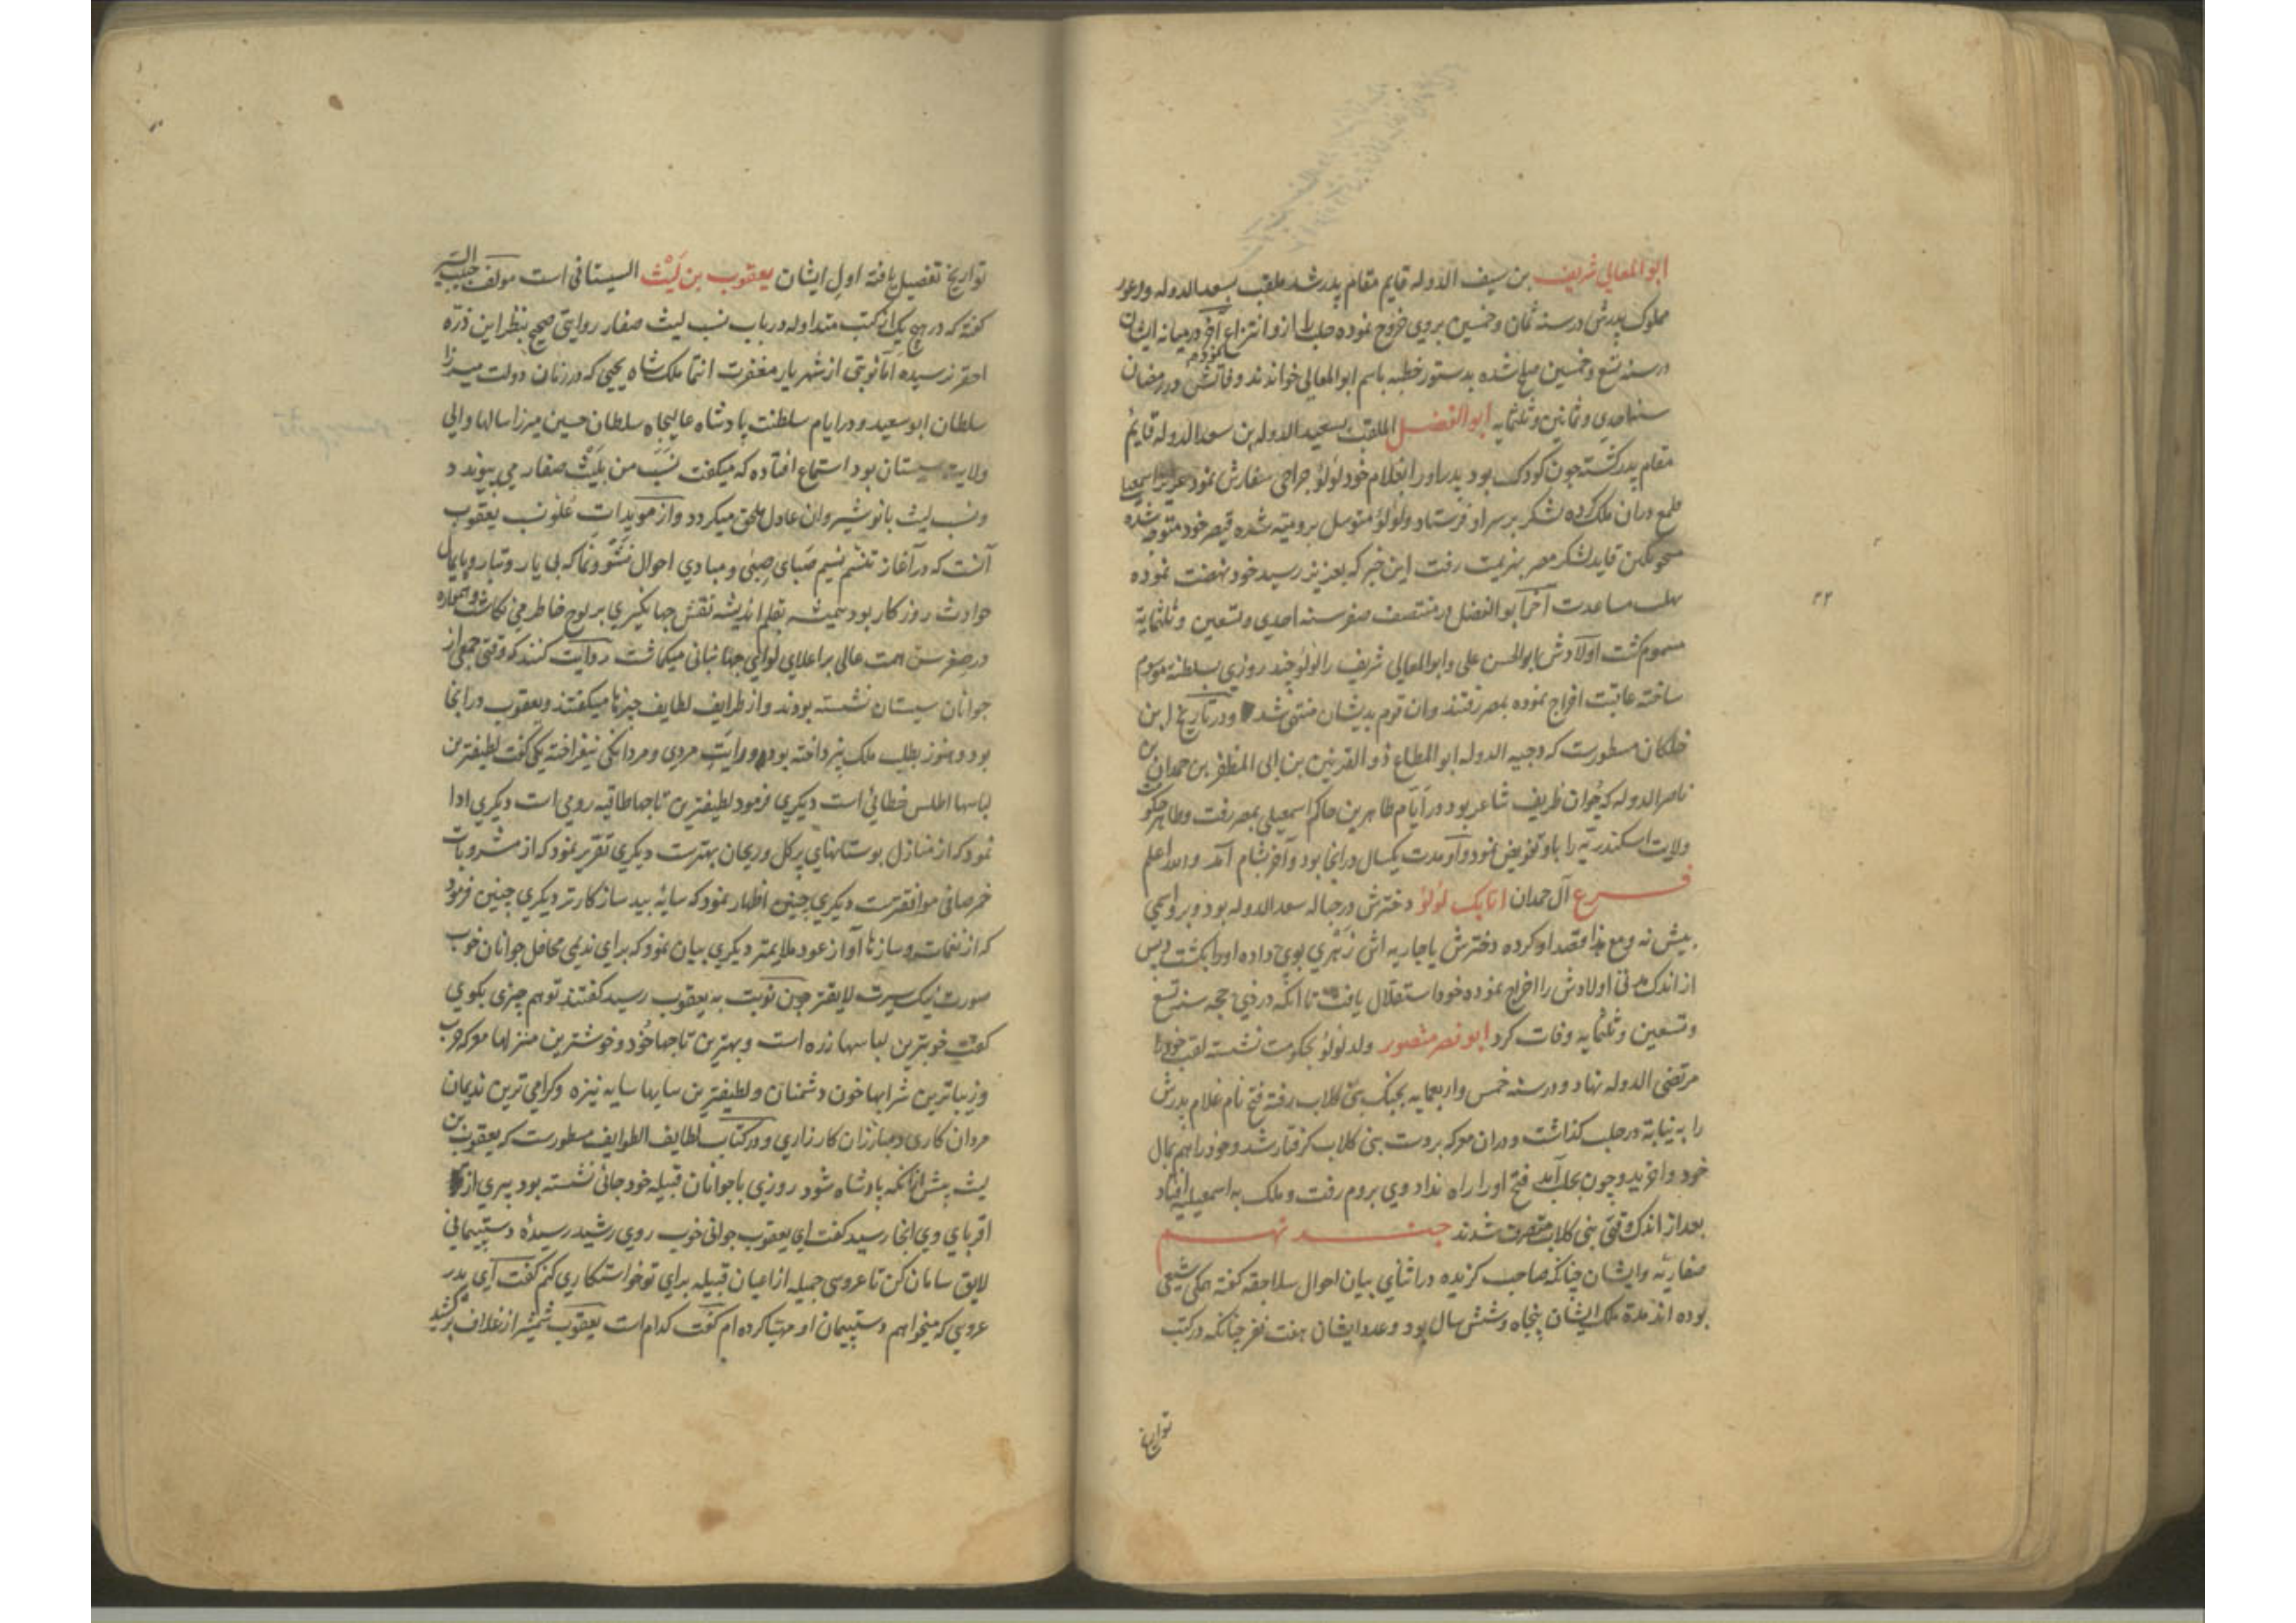 ابو المعالی شریف بن سیف الدوله قایم مقام پدر شد ملقب بسعد الدوله و رعویه
مملوک پدرش در سنه ثمان و خمسین بروی خروج نموده حلب را ازو انتزاع نمود آخر در میانه ایشان
در سنه تسع و خمسین صلح شده بدستور خطبه باسم ابو المعالی خواندند وفاتش در رمضان
سنه احدی و ثمانین و ثلثمایه ابو الفضل الملقب بسعید الدوله بن سعد الدوله قایم
مقام پدر کشته چون کودک بود پدر او را بغلام خود لؤلؤ جراحی سفارش نمود عزیز اسمعیلی
طمع دران ملک کرده لشکر بر سر او فرستاد و لؤلؤ متوسل برومیه شده قیصر خود متوجه شده
منجوتکین قاید لشکر مصر بهزیمت رفت این خبر که بعزیز رسید خود نهضت نموده
مساعدت آخر ابو الفضل در منتصف صفر سنه احدی و تسعین و ثلثمایة
مسموم کشت اولادش ابو الحسن علی و ابو المعالی شریف را لؤلؤ چند روزی بسلطنه موسوم
ساخته عاقبت اخراج نموده بمصر رفتند وان قوم بدیشان منتهی شد و در تاریخ ابن
خلکان مسطورست که وجیه الدوله ابو المطاع ذو القرنین بن ابی المظفر بن حمدان بن
ناصر الدوله که جوان ظریف شاعر بود در ایام ظاهر بن حاکم اسمعیلی بمصر رفت و ظاهر حکومت
ولایت اسکندریه را باو تفویض نمود و او مدت یکسال در انجا بود و آخر بشام آمد والله اعلم
فرع آل حمدان اتابک لؤلؤ دخترش در حباله سعد الدوله بود و برو اسمی
بیش نه و مع هذا قصد او کرده دخترش یا جاریه اش زهری بوی داده او را بکشت و پس
از اندک مدتی اولادش را اخراج نموده خود استقلال یافت تا انکه در ذی حجه سنه تسع
و تسعین و ثلثمایه وفات کرد ابو نصر منصور ولد لؤلؤ بحکومت نشسته لقب خود را
مرتضی الدوله نهاد و در سنه خمس و اربعمایه بجنک بنی کلاب رفته فتح نام غلام پدرش
را به نیابة در حلب کذاشت و دران معرکه بدست بنی کلاب کرفتار شد و خود را هم بمال
خود واخرید و چون بحلب آمد فتح او را راه نداد وی بروم رفت و ملک به اسمعیلیه افتاد
بعد از اندک وقتی بنی کلاب متصرف شدند جند نهم
صفاریه و ایشان چنانکه صاحب کزیده در اثنای بیان احوال سلاجقه کفته همکی شیعی
بوده اند مدة ملک ایشان پنجاه و شش سال بود و عدد ایشان هفت نفر چنانکه در کتب
تواریخ
۲۲
تواریخ تفصیل یافته اول ایشان یعقوب بن لیث السیستانی است مولف حبیب السیر
کفته که در هیچ یک از کتب متداوله در باب نسب لیث صفار روایتی صحیح بنظر این ذره
احقر نرسیده اما نوبتی از شهریار مغفرت انتما ملک شاه یحیی که در زمان دولت میرزا
سلطان ابو سعید و در ایام سلطنت پادشاه عالیجاه سلطان حسین میرزا سالها والی
ولایت سیستان بود استماع افتاده که میکفت نسب من بلیث صفار می پیوندد
و نسب لیث بانوشیروان عادل ملحق میکردد و از مویدات علو نسب یعقوب
آنست که در آغاز تنسم نسیم صبای صبی و مبادی احوال نشو و نما که بی یار و تبار و پایمال
حوادث روزکار بود همیشه بقلم اندیشه نقش جهانکیری بر لوح خاطر می نکاشت و همواره
در صغر سن همت عالی بر اعلای لوای جهانبانی میکماشت روایت کنند که وقتی جمعی از
جوانان سیستان نشسته بودند و از ظرایف لطایف چیزها میکفتند و یعقوب در انجا
بود و هنوز بطلب ملک نپرداخته بود و رایت مردی و مردانکی نیفراخته یکی کفت لطیفترین
لباسها اطلس خطائی است دیکری فرمود لطیفترین تاجها طاقیه رومی است دیکری ادا
نمود که از منازل بوستانهای پر کل و ریحان بهترست دیکری تقریر نمود که از مشروبات
خمر صافی موافقترست دیکری چنین اظهار نمود که سایه بید سازکارتر دیکری چنین فرمود
که از نغمات و سازها آواز عود ملایمتر دیکری بیان نمود که برای ندیمی محافل جوانان خوب
صورت نیک سیرت لایقتر چون نوبت به یعقوب رسید کفتند تو هم چیزی بکوی
کفت خوبترین لباسها زره است و بهترین تاجها خود و خوشترین منزلها معرکه حرب
و زیباترین شرابها خون دشمنان و لطیفترین سایها سایه نیزه و کرامی ترین ندیمان
مردان کاری و مبارزان کارزاری و در کتاب لطایف الطوایف مسطورست که یعقوب بن
لیث پیش ازانکه پادشاه شود روزی با جوانان قبیله خود جائی نشسته بود پیری از
اقربای وی انجا رسید کفت ای یعقوب جوانی خوب روی رشید رسیدهٔ دستپیمانی
لایق سامان کن تا عروسی جمیله از اعیان قبیله برای تو خواستکاری کنم کفت ای پدر
عروسی که میخواهم دستپیمان او مهیا کرده ام کفت کدام است یعقوب شمشیر از غلاف برکشید